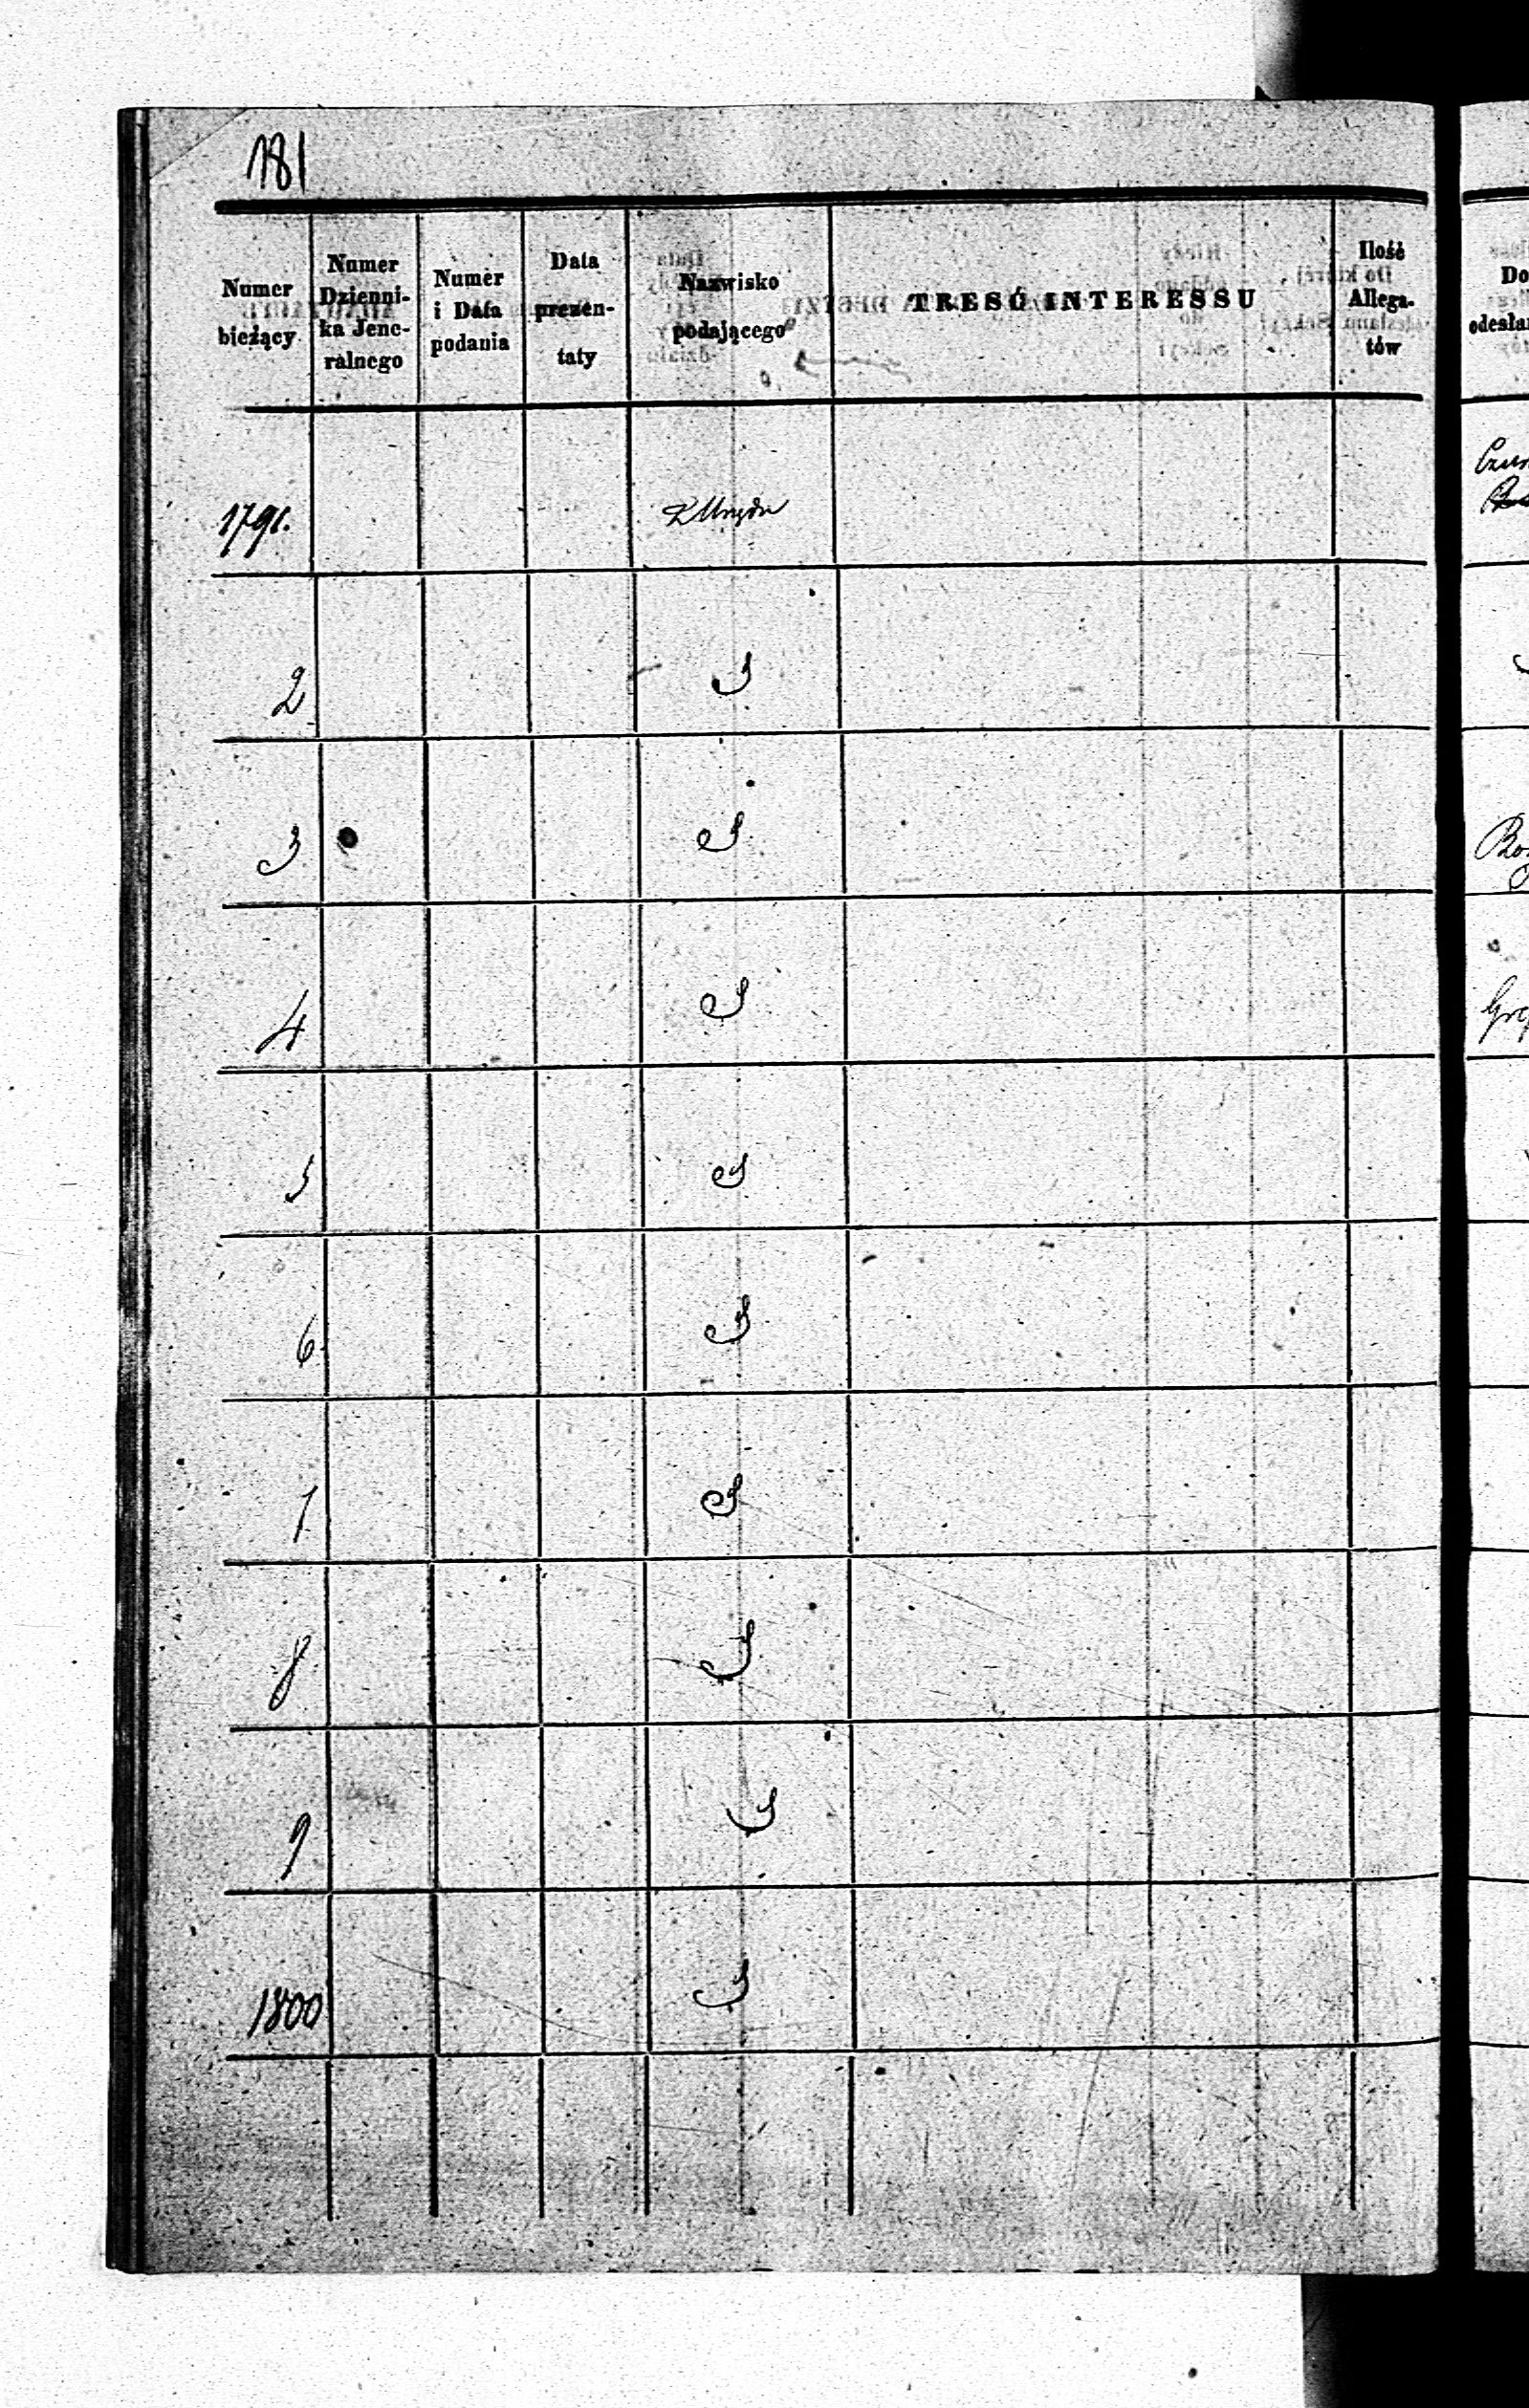 181
Numer bieżący
Numer Dzienni-ka Jene-ralnego
Numer i Data podania
Data prezen-taty
Nazwisko podającego
TREŚĆ INTERESSU
Ilość Allega-tów
Do
1791. Z Urzędu
2
3
4
5
6
7
8
9
1800